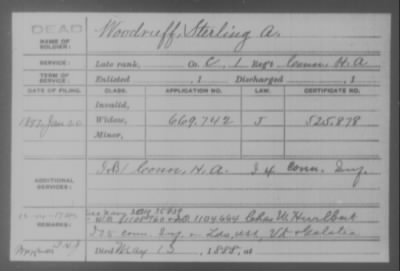 DEAD
NAME OF SOLDIER: Woodruff, Sterling A.
SERVICE: Late rank, Co. C, 1 Reg't Conn. H. A
TERM OF SERVICE: Enlisted , 1 Discharged , 1
DATE OF FILING. CLASS. APPLICATION NO. LAW. CERTIFICATE NO.
Invalid,
1897, Jan 20 Widow, 669,742 J 525,878
Minor,
ADDITIONAL SERVICES: I B 1 Conn. H. A I 4 Conn. Inf.
REMARKS: Chas W Hurlbut
I 25 Conn. Inf. & Lds, USN, Vt & Galatea
Died May 13, 1888, at